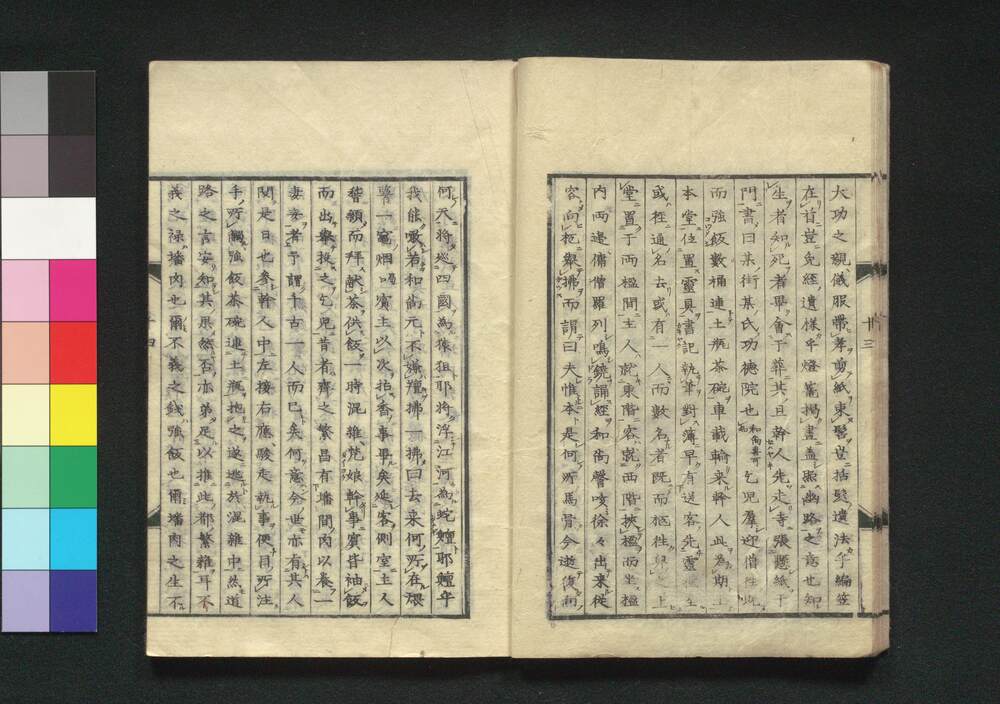 大功之親儀服帶葬剪紙束髻豈括髮遺法乎編笠
在首豈免絰遺樣乎燈籠揭晝蓋照幽路之意也知
生者知死者畢會于葬其且幹人先走寺張懸紙于
門書曰某街某氏功德院也乞兒羣迎偕徃
而強飯數桶連土瓶茶碗車載輸來幹人此為期
本堂位置靈具書記執筆對簿早有送客先靈
或徃通名去或有一人而數名者既而柩徃
堂置于兩楹間主人就東階客就西階挾楹而坐楹
內兩邊傭僧羅列鳴鐃誦經和尚聲咳徐々出來從
容向柩舉拂而謂曰夫惟本是何所馬骨今逝復
何天將巡四國為猿狙耶將浮江河為蛇鱣耶鱣乎
我能噉若和尚元不嫌羶拂一拂曰去来何所在喂
喝賓主以次拈香事畢矣延客側室主人
稽顙而拜獻茶供飯一時混雜幹事賓皆袖飯
而出舉投之乞兒昔者齊之繁昌有墦間肉以養一
妻妾者予謂千古一人而已矣何意今世亦有其人
閱是日也參幹人中左接右應駿走執事便目所注
手所觸強飯茶碗連土瓶抱之遂逃於混雜中然道
路之言安知其果然否亦第足以推此都繁雜耳不
義之祿墦肉也爾不義之錢強飯也爾墦肉之生不
廿三